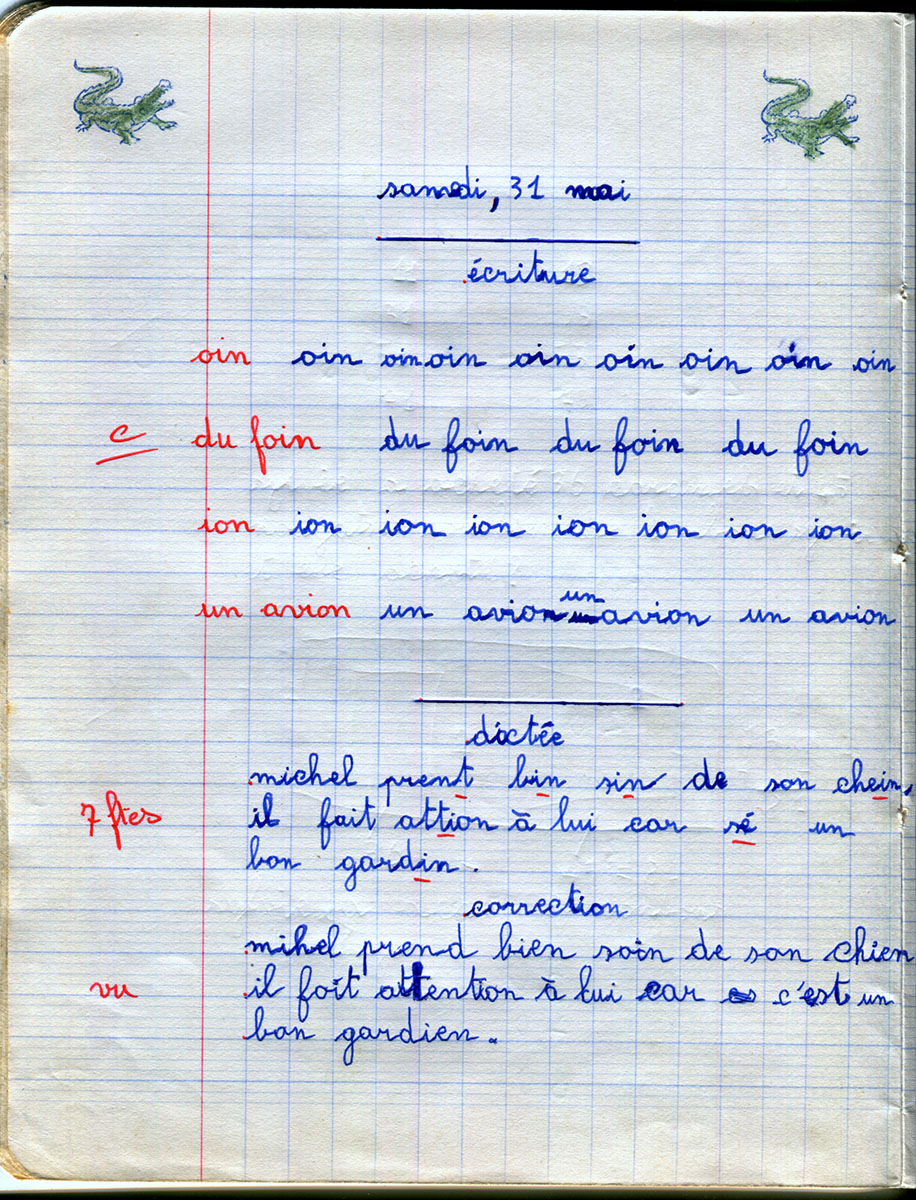 samedi, 31 mai
écriture
oin oin oin oin oin oin oin oin oin
c du foin du foin du foin du foin
ion ion ion ion ion ion ion ion
un avion un avion un avion un avion
dictée
michel prent bin sin de son chein.
7 ftes il fait attion à lui car sé un
bon gardin.
correction
mihel prend bien soin de son chien
vu il foit attention à lui car c'est un
bon gardien.